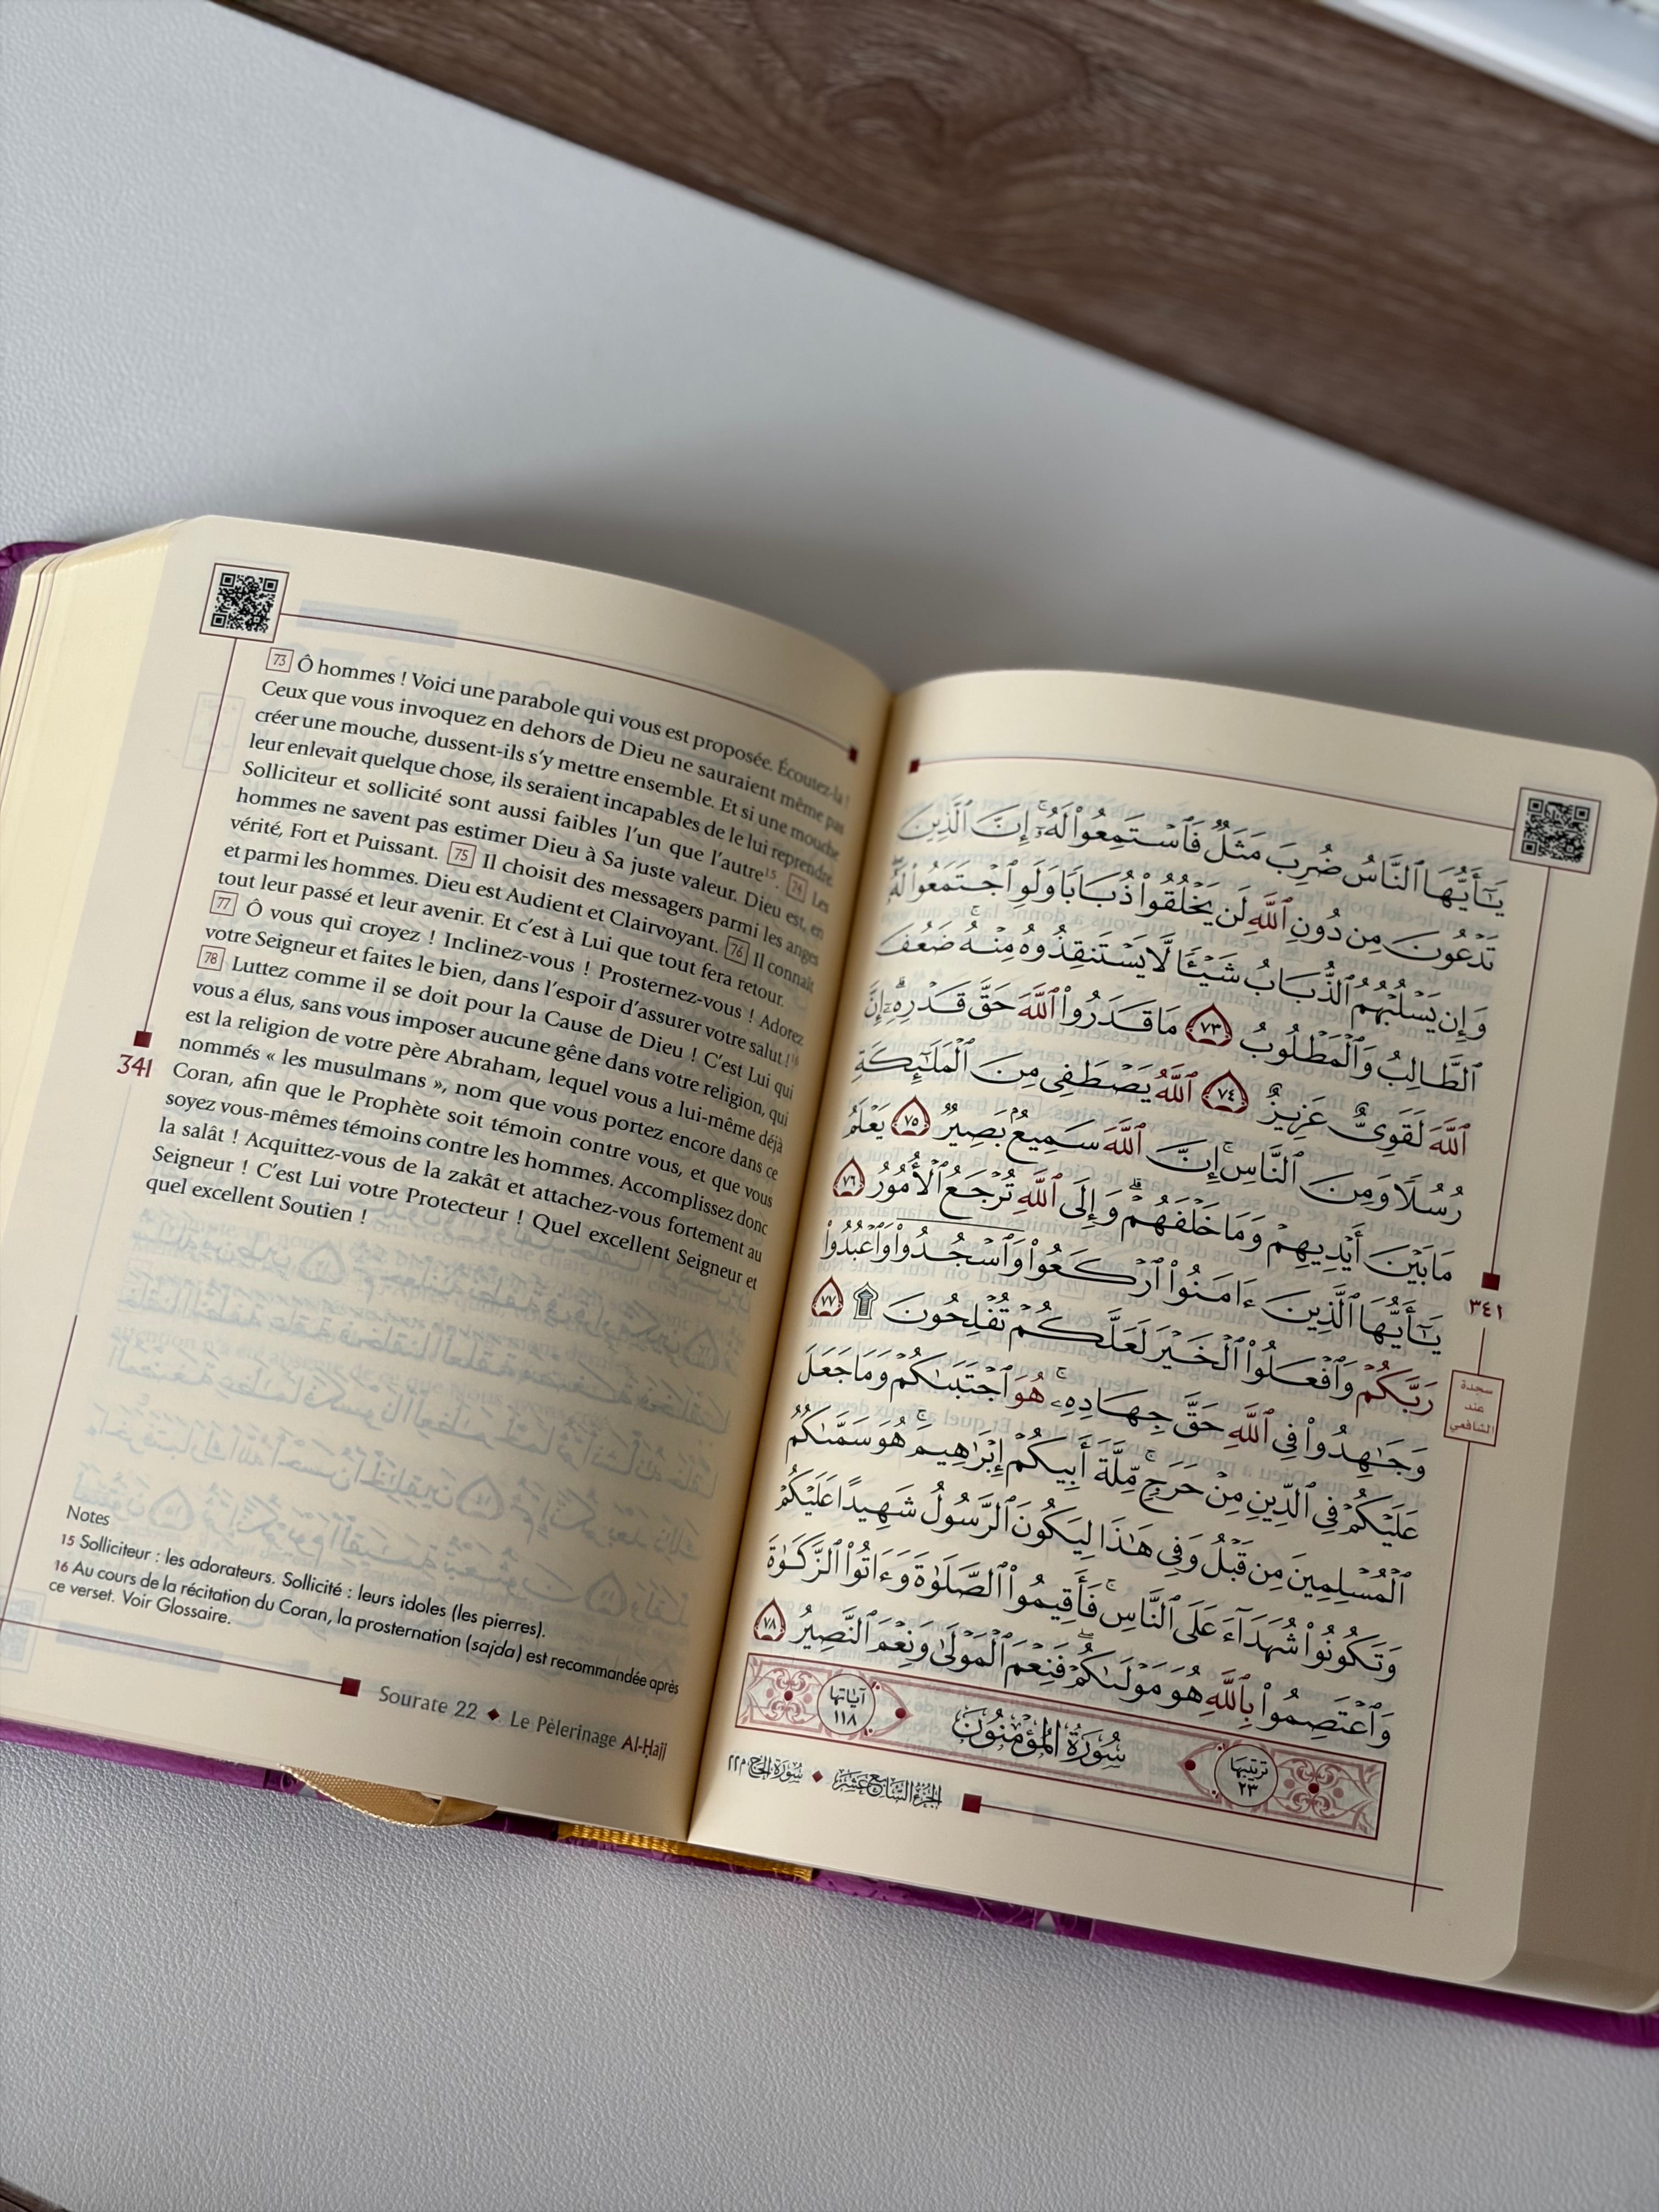 73 Ô hommes ! Voici une parabole qui vous est proposée. Écoutez-la !
Ceux que vous invoquez en dehors de Dieu ne sauraient même pas
créer une mouche, dussent-ils s’y mettre ensemble. Et si une mouche
leur enlevait quelque chose, ils seraient incapables de le lui reprendre.
Solliciteur et sollicité sont aussi faibles l’un que l’autre15. 74 Les
hommes ne savent pas estimer Dieu à Sa juste valeur. Dieu est, en
vérité, Fort et Puissant. 75 Il choisit des messagers parmi les anges
et parmi les hommes. Dieu est Audient et Clairvoyant. 76 Il connaît
tout leur passé et leur avenir. Et c’est à Lui que tout fera retour.
77 Ô vous qui croyez ! Inclinez-vous ! Prosternez-vous ! Adorez
votre Seigneur et faites le bien, dans l’espoir d’assurer votre salut !16
78 Luttez comme il se doit pour la Cause de Dieu ! C’est Lui qui
vous a élus, sans vous imposer aucune gêne dans votre religion, qui
est la religion de votre père Abraham, lequel vous a lui-même déjà
nommés « les musulmans », nom que vous portez encore dans ce
Coran, afin que le Prophète soit témoin contre vous, et que vous
soyez vous-mêmes témoins contre les hommes. Accomplissez donc
la salât ! Acquittez-vous de la zakât et attachez-vous fortement au
Seigneur ! C’est Lui votre Protecteur ! Quel excellent Seigneur et
quel excellent Soutien !
341
Notes
15 Solliciteur : les adorateurs. Sollicité : leurs idoles (les pierres).
16 Au cours de la récitation du Coran, la prosternation (sajda) est recommandée après
ce verset. Voir Glossaire.
Sourate 22 ◆ Le Pèlerinage Al-Ḥajj
يَٰٓأَيُّهَا ٱلنَّاسُ ضُرِبَ مَثَلٌ فَٱسْتَمِعُوا۟ لَهُۥٓ ۚ إِنَّ ٱلَّذِينَ
تَدْعُونَ مِن دُونِ ٱللَّهِ لَن يَخْلُقُوا۟ ذُبَابًا وَلَوِ ٱجْتَمَعُوا۟ لَهُۥ ۖ
وَإِن يَسْلُبْهُمُ ٱلذُّبَابُ شَيْـًٔا لَّا يَسْتَنقِذُوهُ مِنْهُ ۚ ضَعُفَ
ٱلطَّالِبُ وَٱلْمَطْلُوبُ ٧٣ مَا قَدَرُوا۟ ٱللَّهَ حَقَّ قَدْرِهِۦٓ ۗ إِنَّ
ٱللَّهَ لَقَوِىٌّ عَزِيزٌ ٧٤ ٱللَّهُ يَصْطَفِى مِنَ ٱلْمَلَٰٓئِكَةِ
رُسُلًا وَمِنَ ٱلنَّاسِ ۚ إِنَّ ٱللَّهَ سَمِيعٌۢ بَصِيرٌ ٧٥ يَعْلَمُ
مَا بَيْنَ أَيْدِيهِمْ وَمَا خَلْفَهُمْ ۗ وَإِلَى ٱللَّهِ تُرْجَعُ ٱلْأُمُورُ ٧٦
يَٰٓأَيُّهَا ٱلَّذِينَ ءَامَنُوا۟ ٱرْكَعُوا۟ وَٱسْجُدُوا۟ وَٱعْبُدُوا۟
رَبَّكُمْ وَٱفْعَلُوا۟ ٱلْخَيْرَ لَعَلَّكُمْ تُفْلِحُونَ ۩ ٧٧
وَجَٰهِدُوا۟ فِى ٱللَّهِ حَقَّ جِهَادِهِۦ ۚ هُوَ ٱجْتَبَىٰكُمْ وَمَا جَعَلَ
عَلَيْكُمْ فِى ٱلدِّينِ مِنْ حَرَجٍ ۚ مِّلَّةَ أَبِيكُمْ إِبْرَٰهِيمَ ۚ هُوَ سَمَّىٰكُمُ
ٱلْمُسْلِمِينَ مِن قَبْلُ وَفِى هَٰذَا لِيَكُونَ ٱلرَّسُولُ شَهِيدًا عَلَيْكُمْ
وَتَكُونُوا۟ شُهَدَآءَ عَلَى ٱلنَّاسِ ۚ فَأَقِيمُوا۟ ٱلصَّلَوٰةَ وَءَاتُوا۟ ٱلزَّكَوٰةَ
وَٱعْتَصِمُوا۟ بِٱللَّهِ هُوَ مَوْلَىٰكُمْ ۖ فَنِعْمَ ٱلْمَوْلَىٰ وَنِعْمَ ٱلنَّصِيرُ ٧٨
٣٤١
سجدة
عند
الشافعي
ترتيبها
٢٣
سُورَةُ المُؤْمِنُونَ
آياتها
١١٨
الجزء السابع عشر ◆ سورة الحج ٢٢